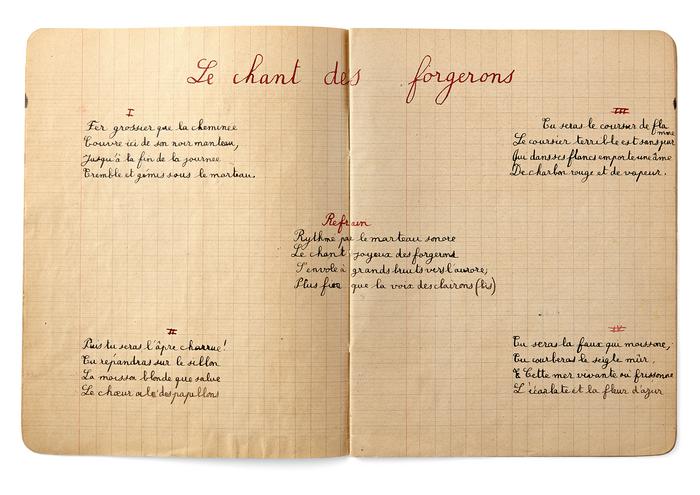 Le chant des forgerons
I
Fer grossier que la cheminée
Couvre ici de son noir manteau,
Jusqu'à la fin de la journée
Tremble et gémis sous le marteau.
Refrain
Rythmé par le marteau sonore
Le chant joyeux des forgerons
S'envole à grands bruits vers l'aurore;
Plus fier que la voix des clairons (bis)
II
Puis tu seras l'âpre charrue!
Tu répandras sur le sillon
La moisson blonde que salue
Le chœur ailé des papillons
III
Tu seras le coursier de fla
mme
Le coursier terrible et sans peur
Qui dans ses flancs emporte une âme
De charbon rouge et de vapeur.
IV
Tu seras la faux qui moissonne,
Tu courberas le seigle mûr,
Cette mer vivante où frissonne
L'écarlate et la fleur d'azur